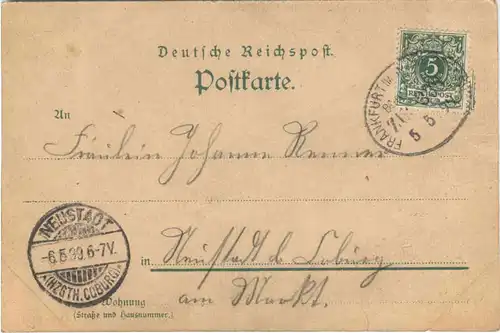 Deutsche Reichspost.
Postkarte.
5
REICHSPOST
FRANKFURT
5 5
An
Fräulein Johanna Renner
NEUSTADT
-6.5.99.6-7V.
(HZGTH.COBURG)
in Neustadt b Coburg
am Markt.
Wohnung
(Straße und Hausnummer.)